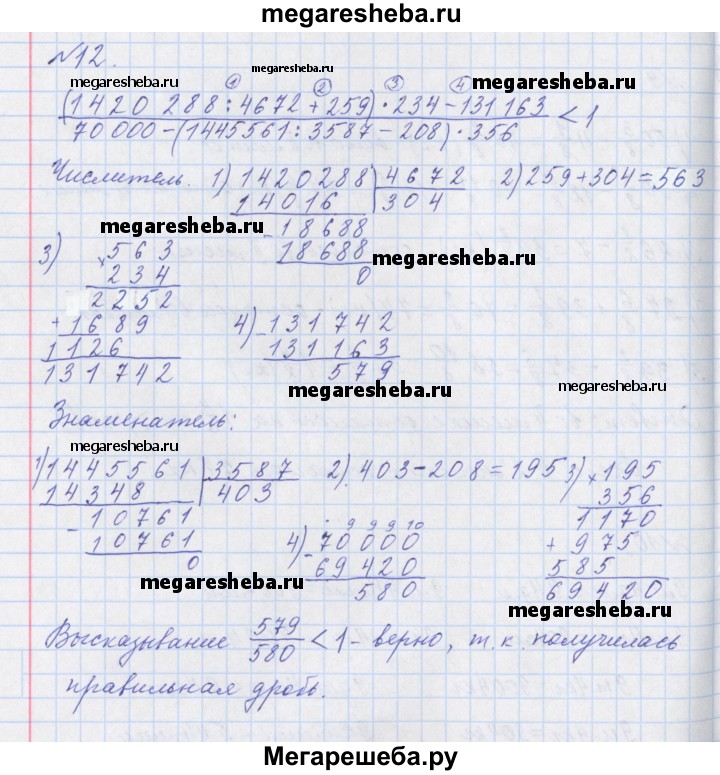 megaresheba.ru
№12.
megaresheba.ru ① megaresheba.ru ② ③ ④ megaresheba.ru
(1420 288 : 4672 + 259) · 234 − 131 163
70 000 − (1445561 : 3587 − 208) · 356 < 1
Числитель. 1) 1420288 | 4672 2) 259 + 304 = 563
14016 304
megaresheba.ru − 18688 megaresheba.ru
18688
0
3) × 563
234
2252
+ 1689
1126
131742
4) − 131742
131163
579
megaresheba.ru megaresheba.ru
Знаменатель:
megaresheba.ru
1) 1445561 | 3587 2) 403 − 208 = 195 3) × 195
14348 403 356
− 10761 1170
10761 + 975
0 585
69420
4) 9 9 9 10
− 70000
69420
580
megaresheba.ru megaresheba.ru
Высказывание 579/580 < 1 - верно, т.к. получилась
правильная дробь.
megaresheba.ru megaresheba.ru
Мегарешеба.ру